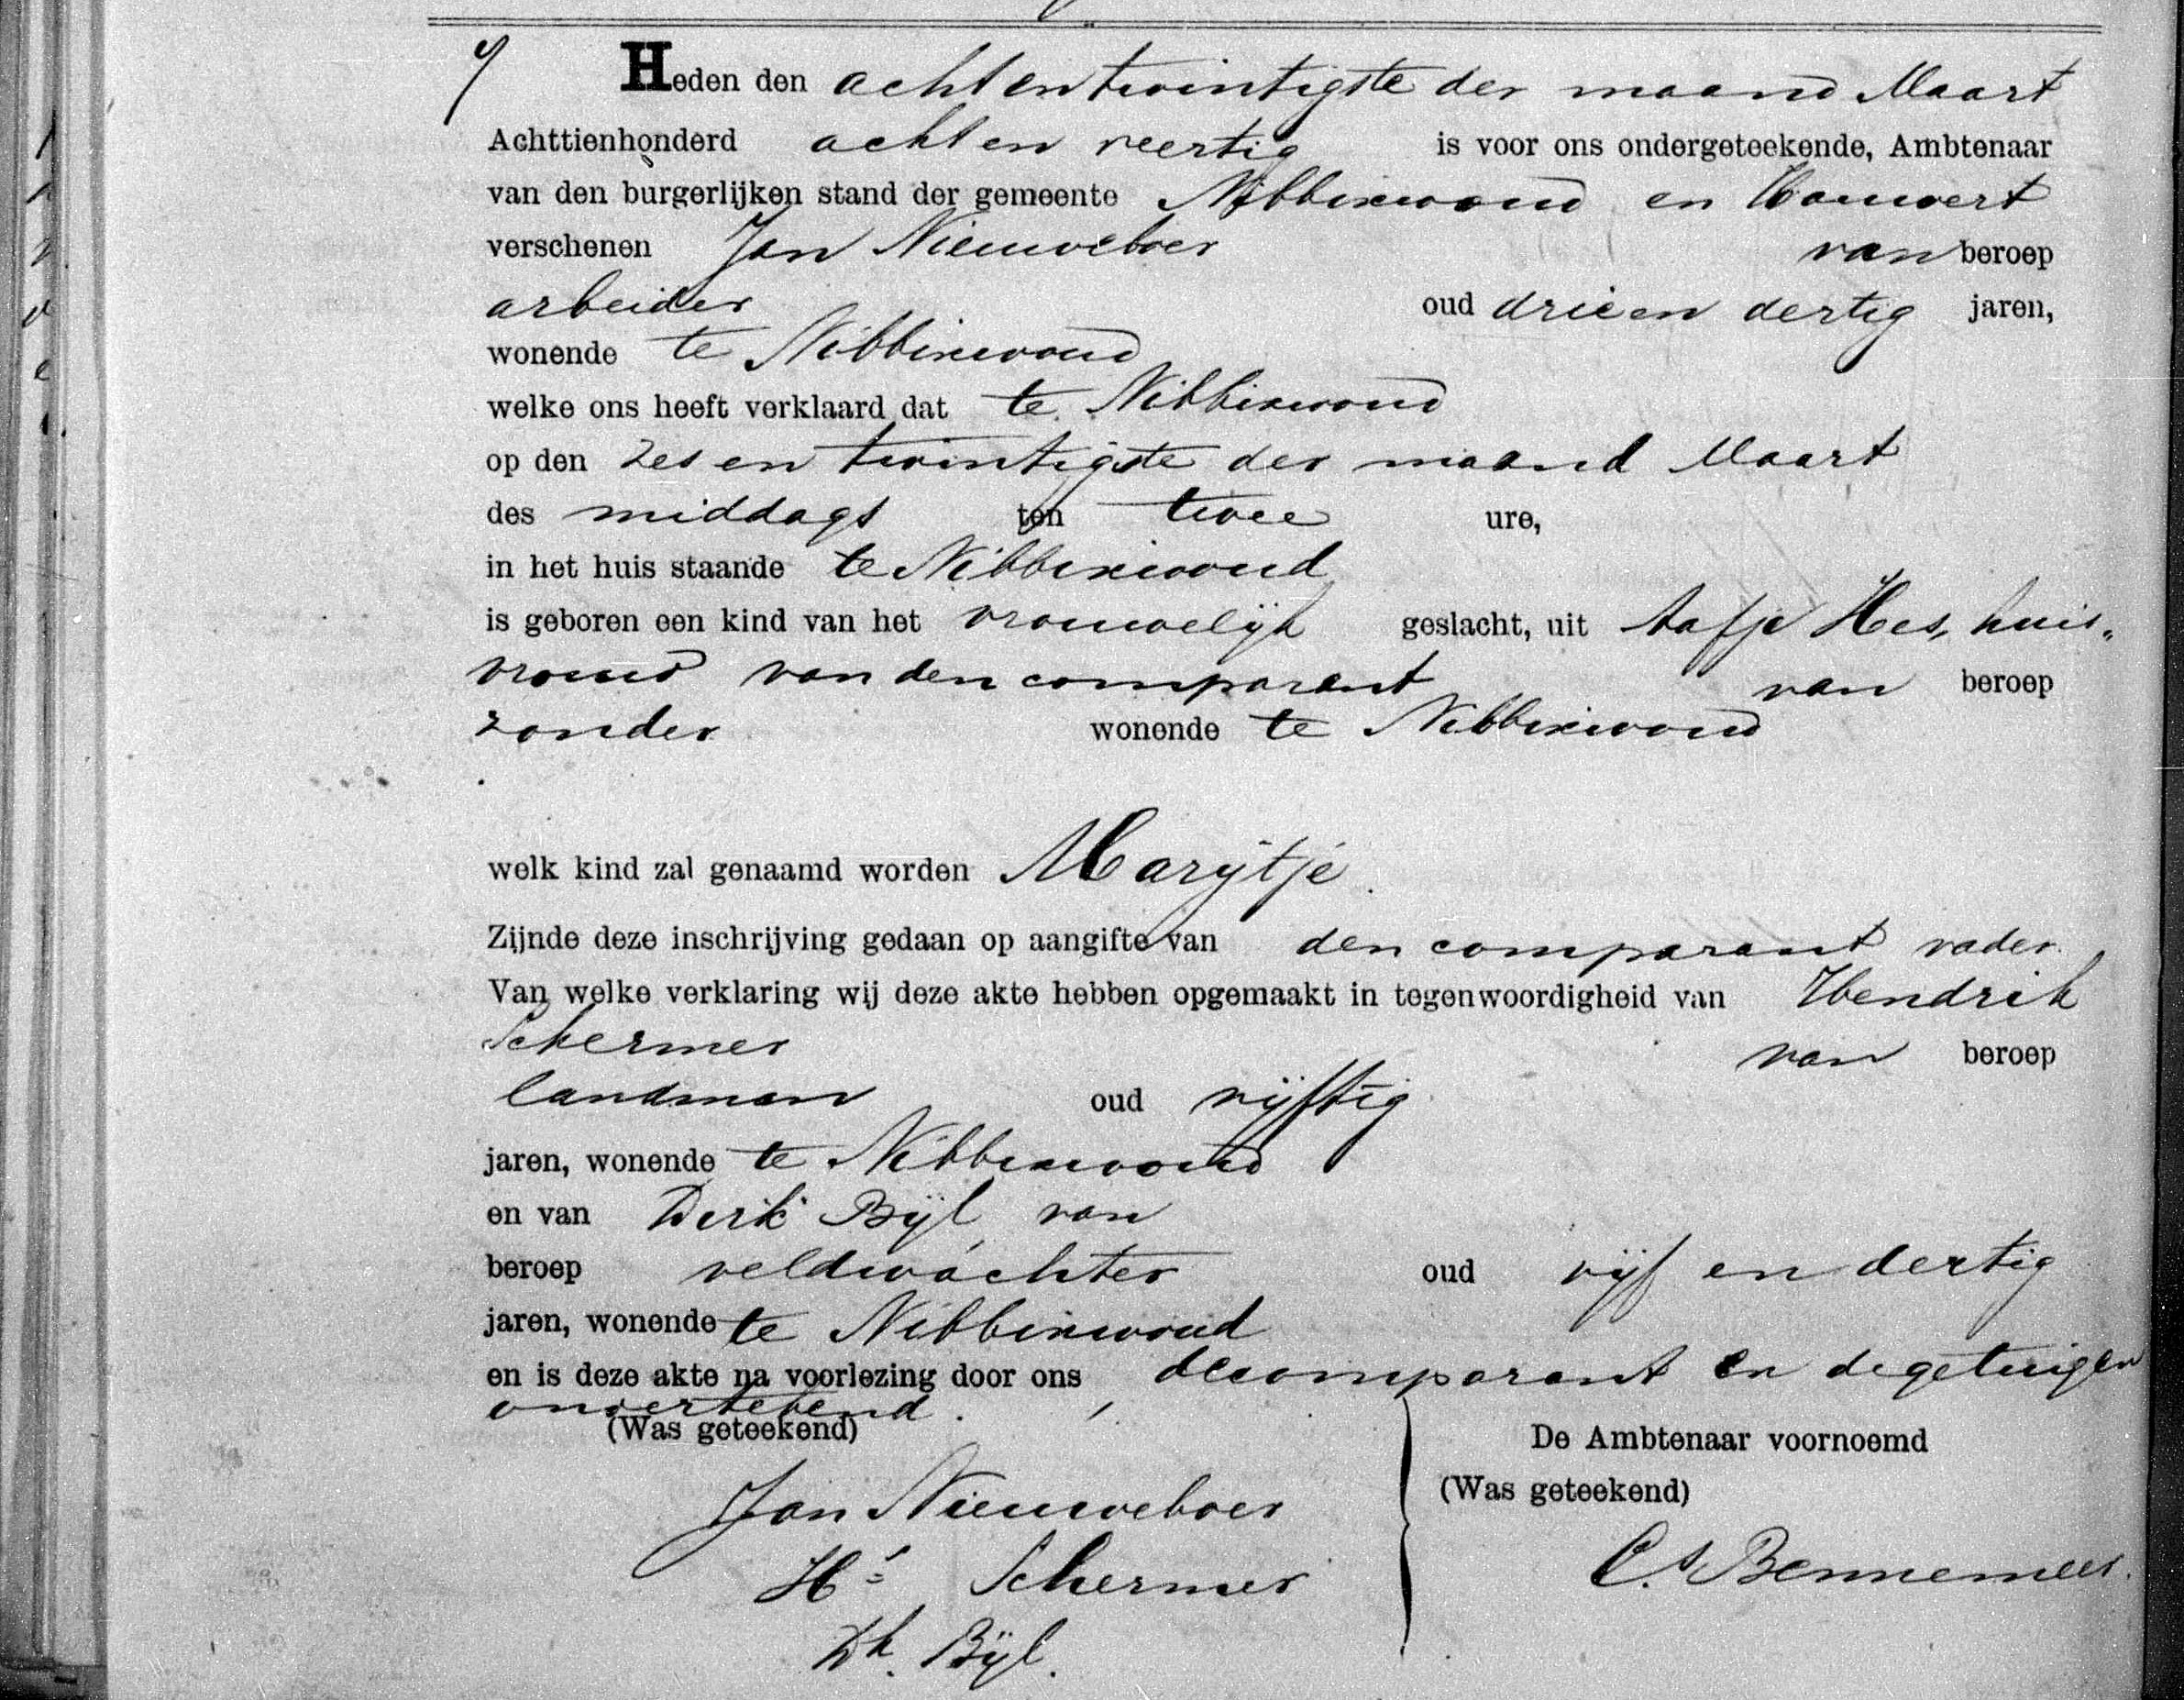 9 Heden den achtentwintigste der maand Maart
Achttienhonderd achten veertig is voor ons ondergeteekende, Ambtenaar
van den burgerlijken stand der gemeente Nibbixwoud en Hauwert
verschenen Jan Nieuweboer van beroep
arbeider oud drieen dertig jaren,
wonende te Nibbixwoud
welke ons heeft verklaard dat te Nibbixwoud
op den zes en twintigste der maand Maart
des middags ten twee ure,
in het huis staande te Nibbixwoud
is geboren een kind van het vrouwelijk geslacht, uit Aafje Hes, huis„
vrouw van den comparant van beroep
zonder wonende te Nibbixwoud
welk kind zal genaamd worden Marijtje.
Zijnde deze inschrijving gedaan op aangifte van den comparant vader.
Van welke verklaring wij deze akte hebben opgemaakt in tegenwoordigheid van Hendrik
Schermer van beroep
landman oud vijftig
jaren, wonende te Nibbixwoud
en van Dirk Bijl van
beroep veldwachter oud vijf en dertig
jaren, wonende te Nibbixwoud
en is deze akte na voorlezing door ons, de comparant en de getuigen
ondertekend.
(Was geteekend)
Jan Nieuweboer
Hk Schermer
Dk. Bijl.
De Ambtenaar voornoemd
(Was geteekend)
Cs Bennemeer.